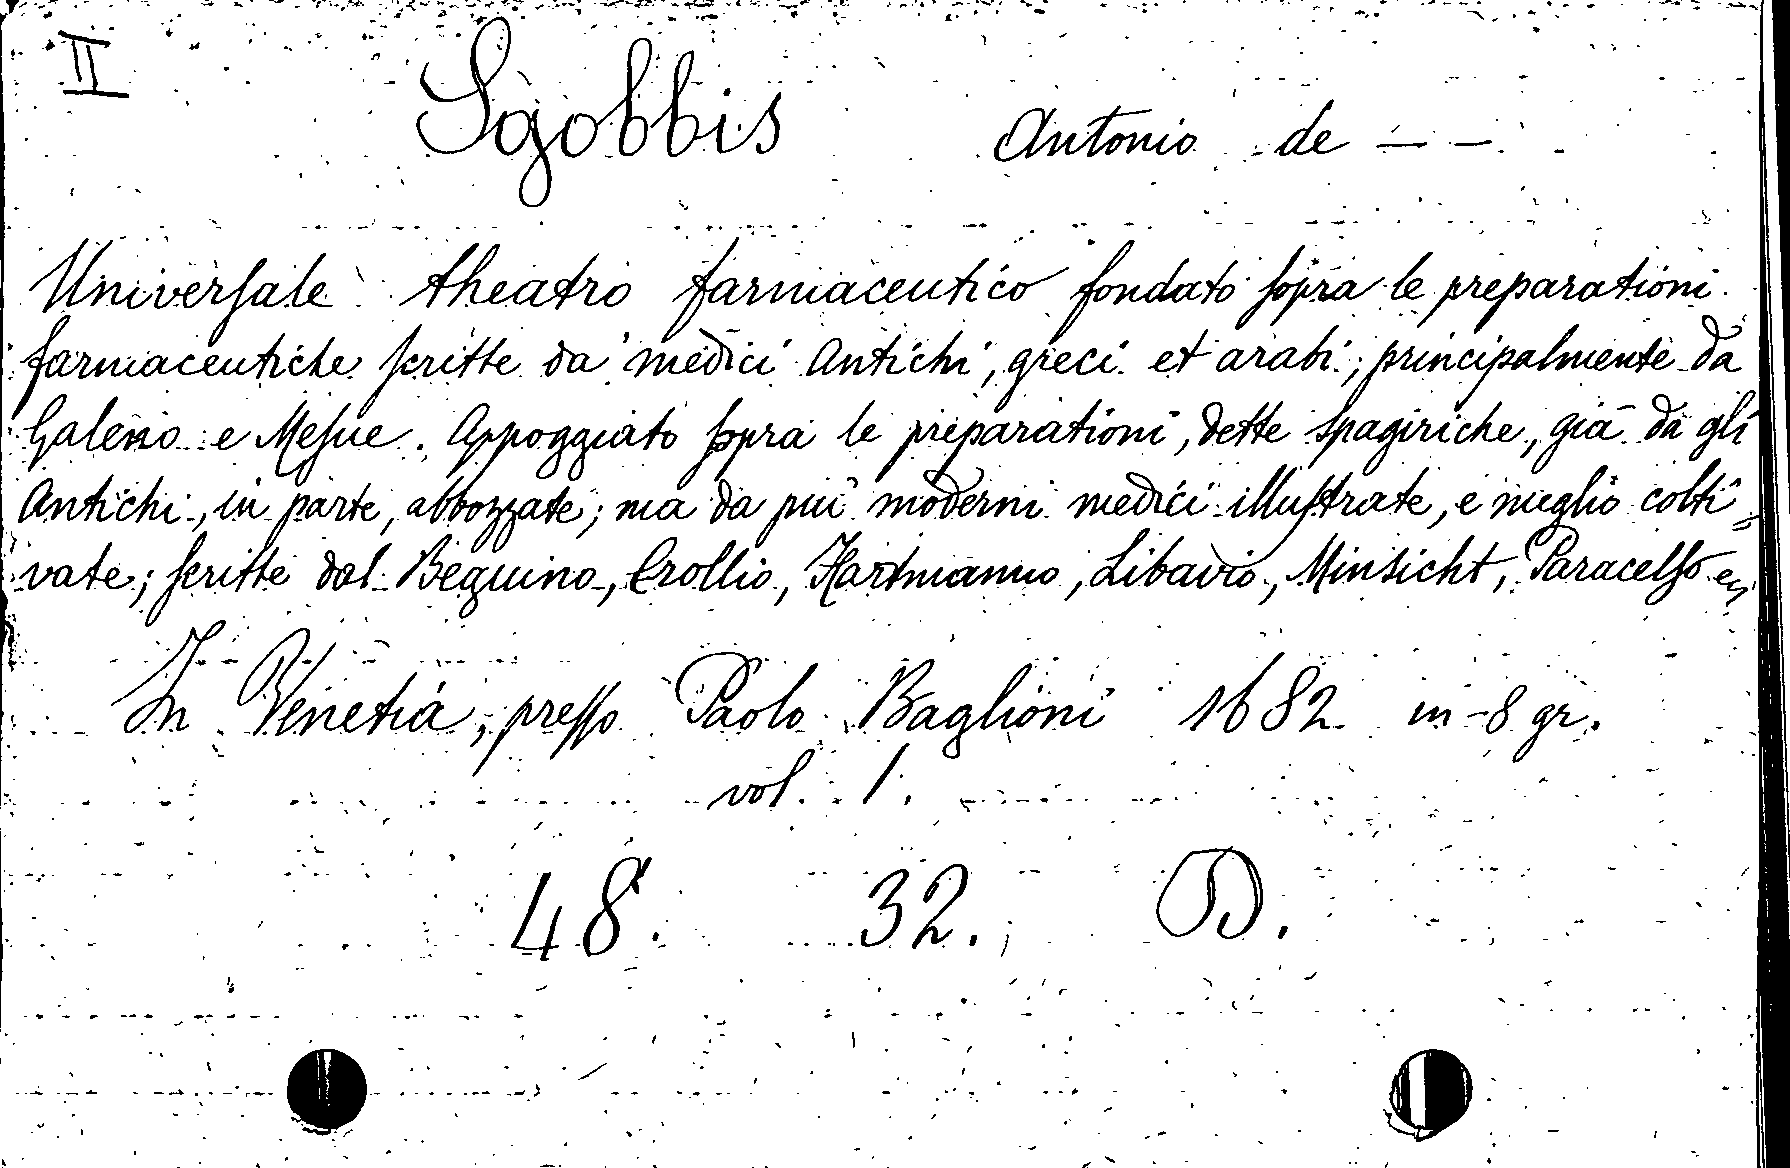 II
Sgobbis Antonio de — —
Universale theatro farmaceutico fondato sopra le preparationi
farmaceutiche scritte da medici Antichi, greci et arabi; principalmente da
Galeno e Mesue. Appoggiato sopra le preparationi, dette spagiriche, già da gli
Antichi, in parte, abbozzate; ma da più moderni medici illustrate, e meglio colti=
vate; scritte dal Beguino, Crollio, Hartmanno, Libavio, Minsicht, Paracelso
In Venetia, presso Paolo Baglioni 1682 in-8 gr.
vol. 1.
48. 32. D.